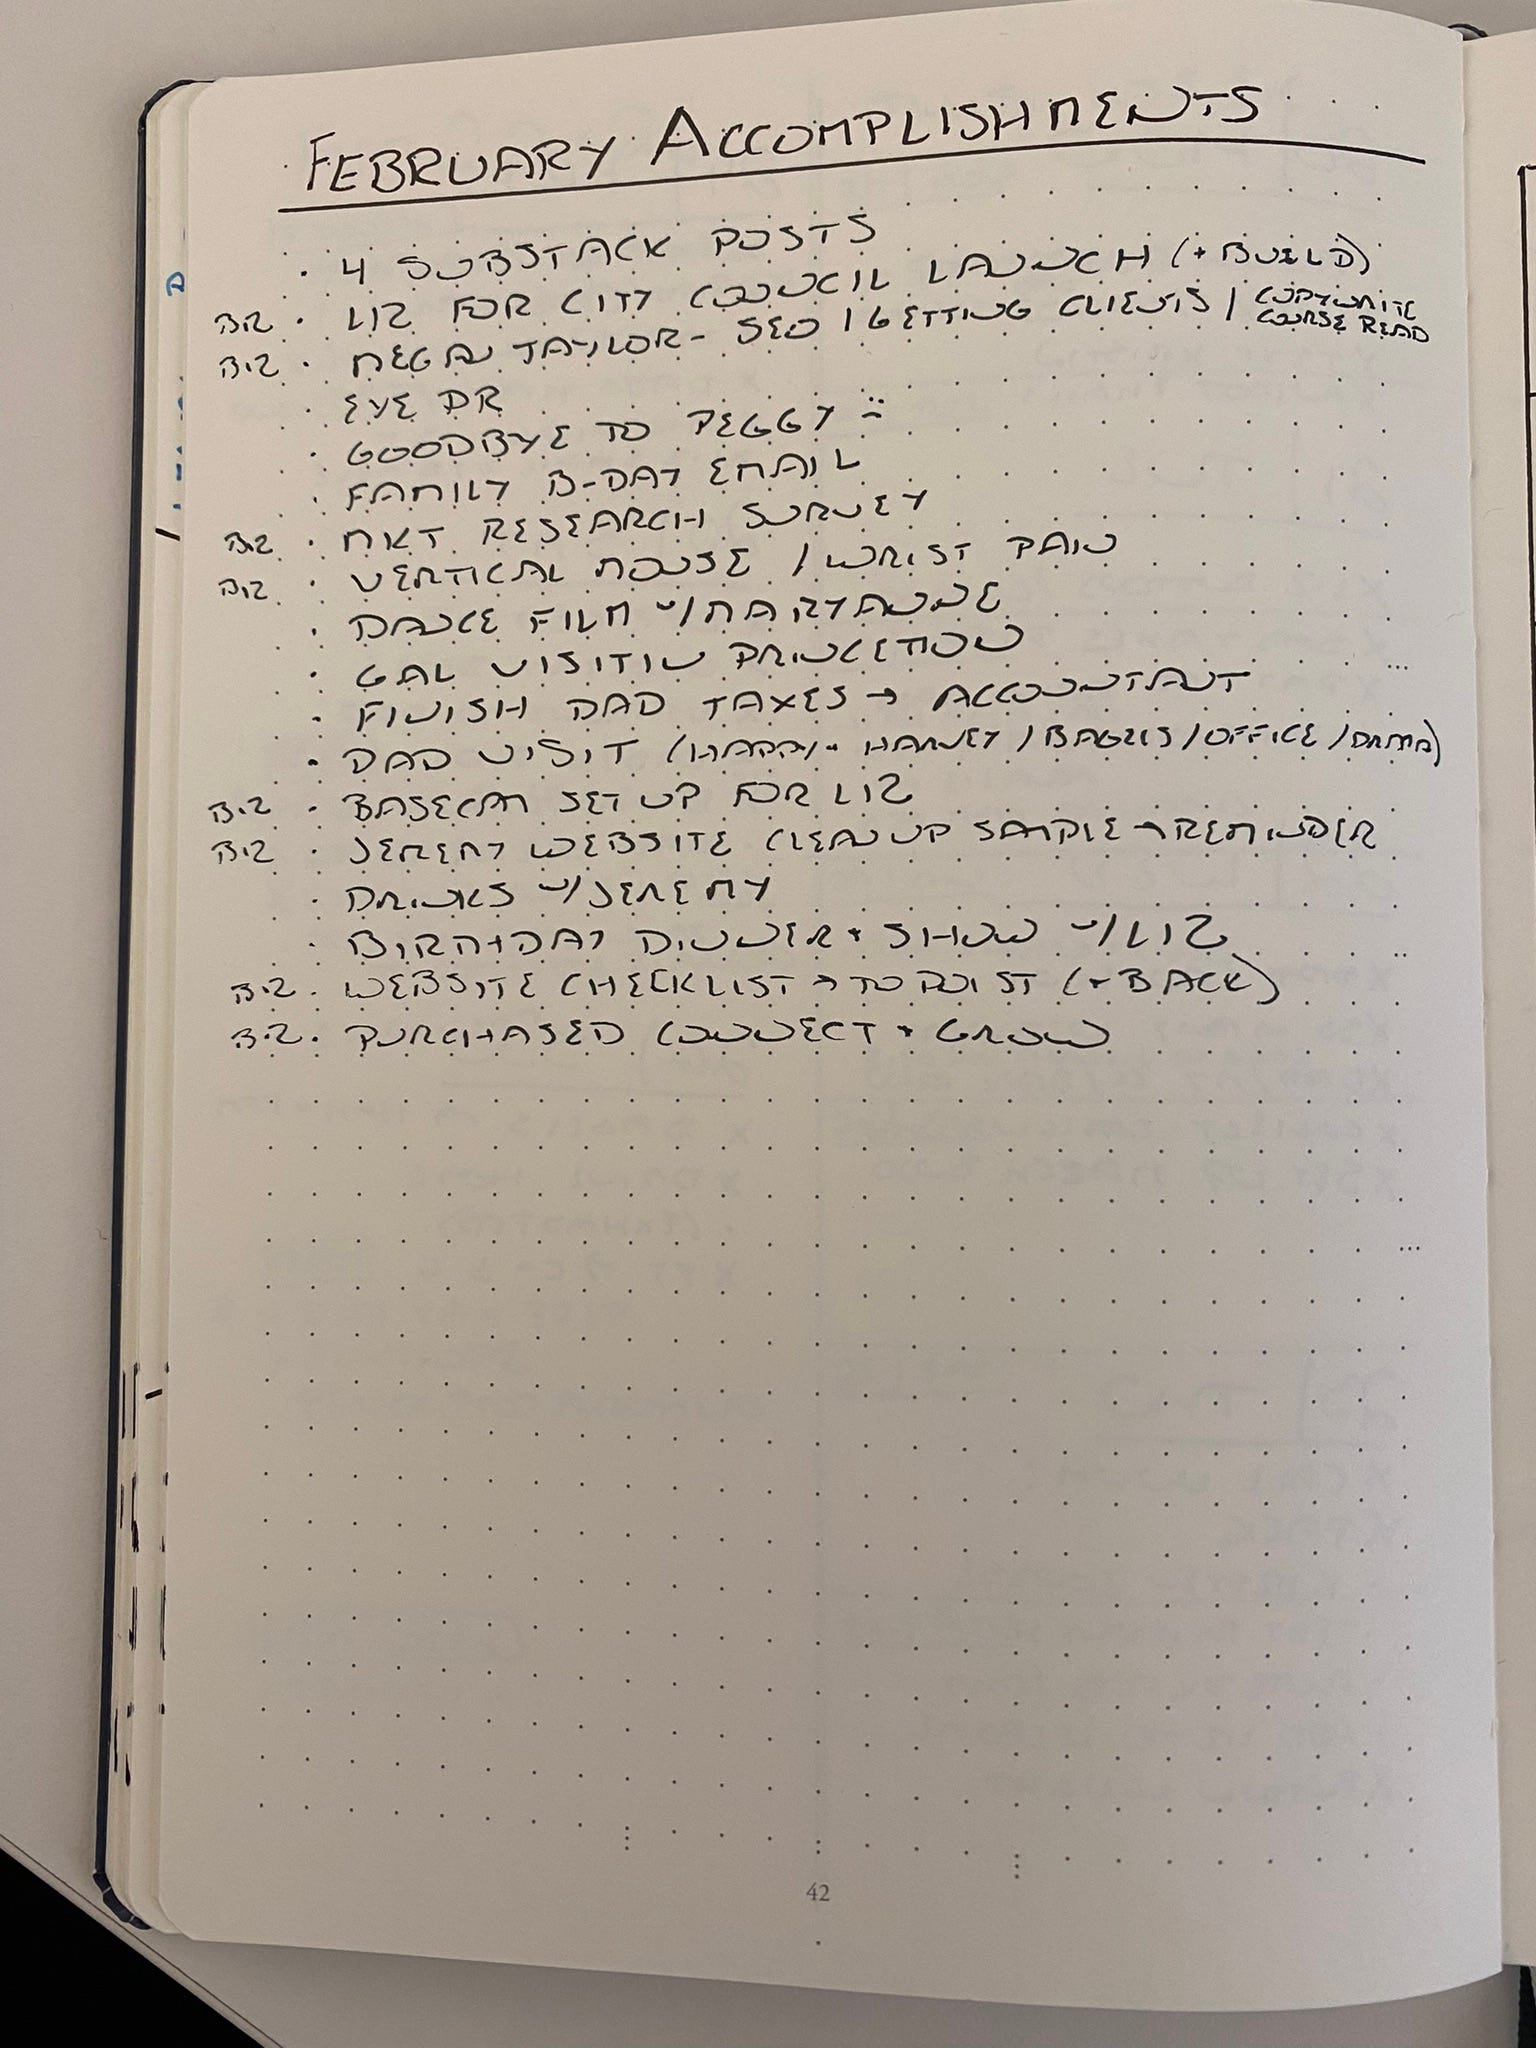 FEBRUARY ACCOMPLISHMENTS
· 4 SUBSTACK POSTS
BIZ · LIZ FOR CITY COUNCIL LAUNCH (+ BUILD)
BIZ · MEGAN TAYLOR - SEO / GETTING CLIENTS / COPYWRITE COURSE READ
· EYE DR
· GOODBYE TO PEGGY :(
· FAMILY B-DAY EMAIL
BIZ · MKT RESEARCH SURVEY
BIZ · VERTICAL MOUSE / WRIST PAIN
· DANCE FILM W/ MARYANNE
· GAL VISITIN PRINCETON
· FINISH DAD TAXES → ACCOUNTANT
· DAD VISIT (HAPPY + HARVEY / BAGELS / OFFICE / DRMA)
BIZ · BASECAM SET UP FOR LIZ
BIZ · JEREMY WEBSITE CLEANUP SAMPLE → REMINDER
· DRINKS W/ JEREMY
· BIRTHDAY DINNER + SHOW W/ LIZ
BIZ · WEBSITE CHECKLIST → TODOIST (+ BACK)
BIZ · PURCHASED CONNECT + GROW
42